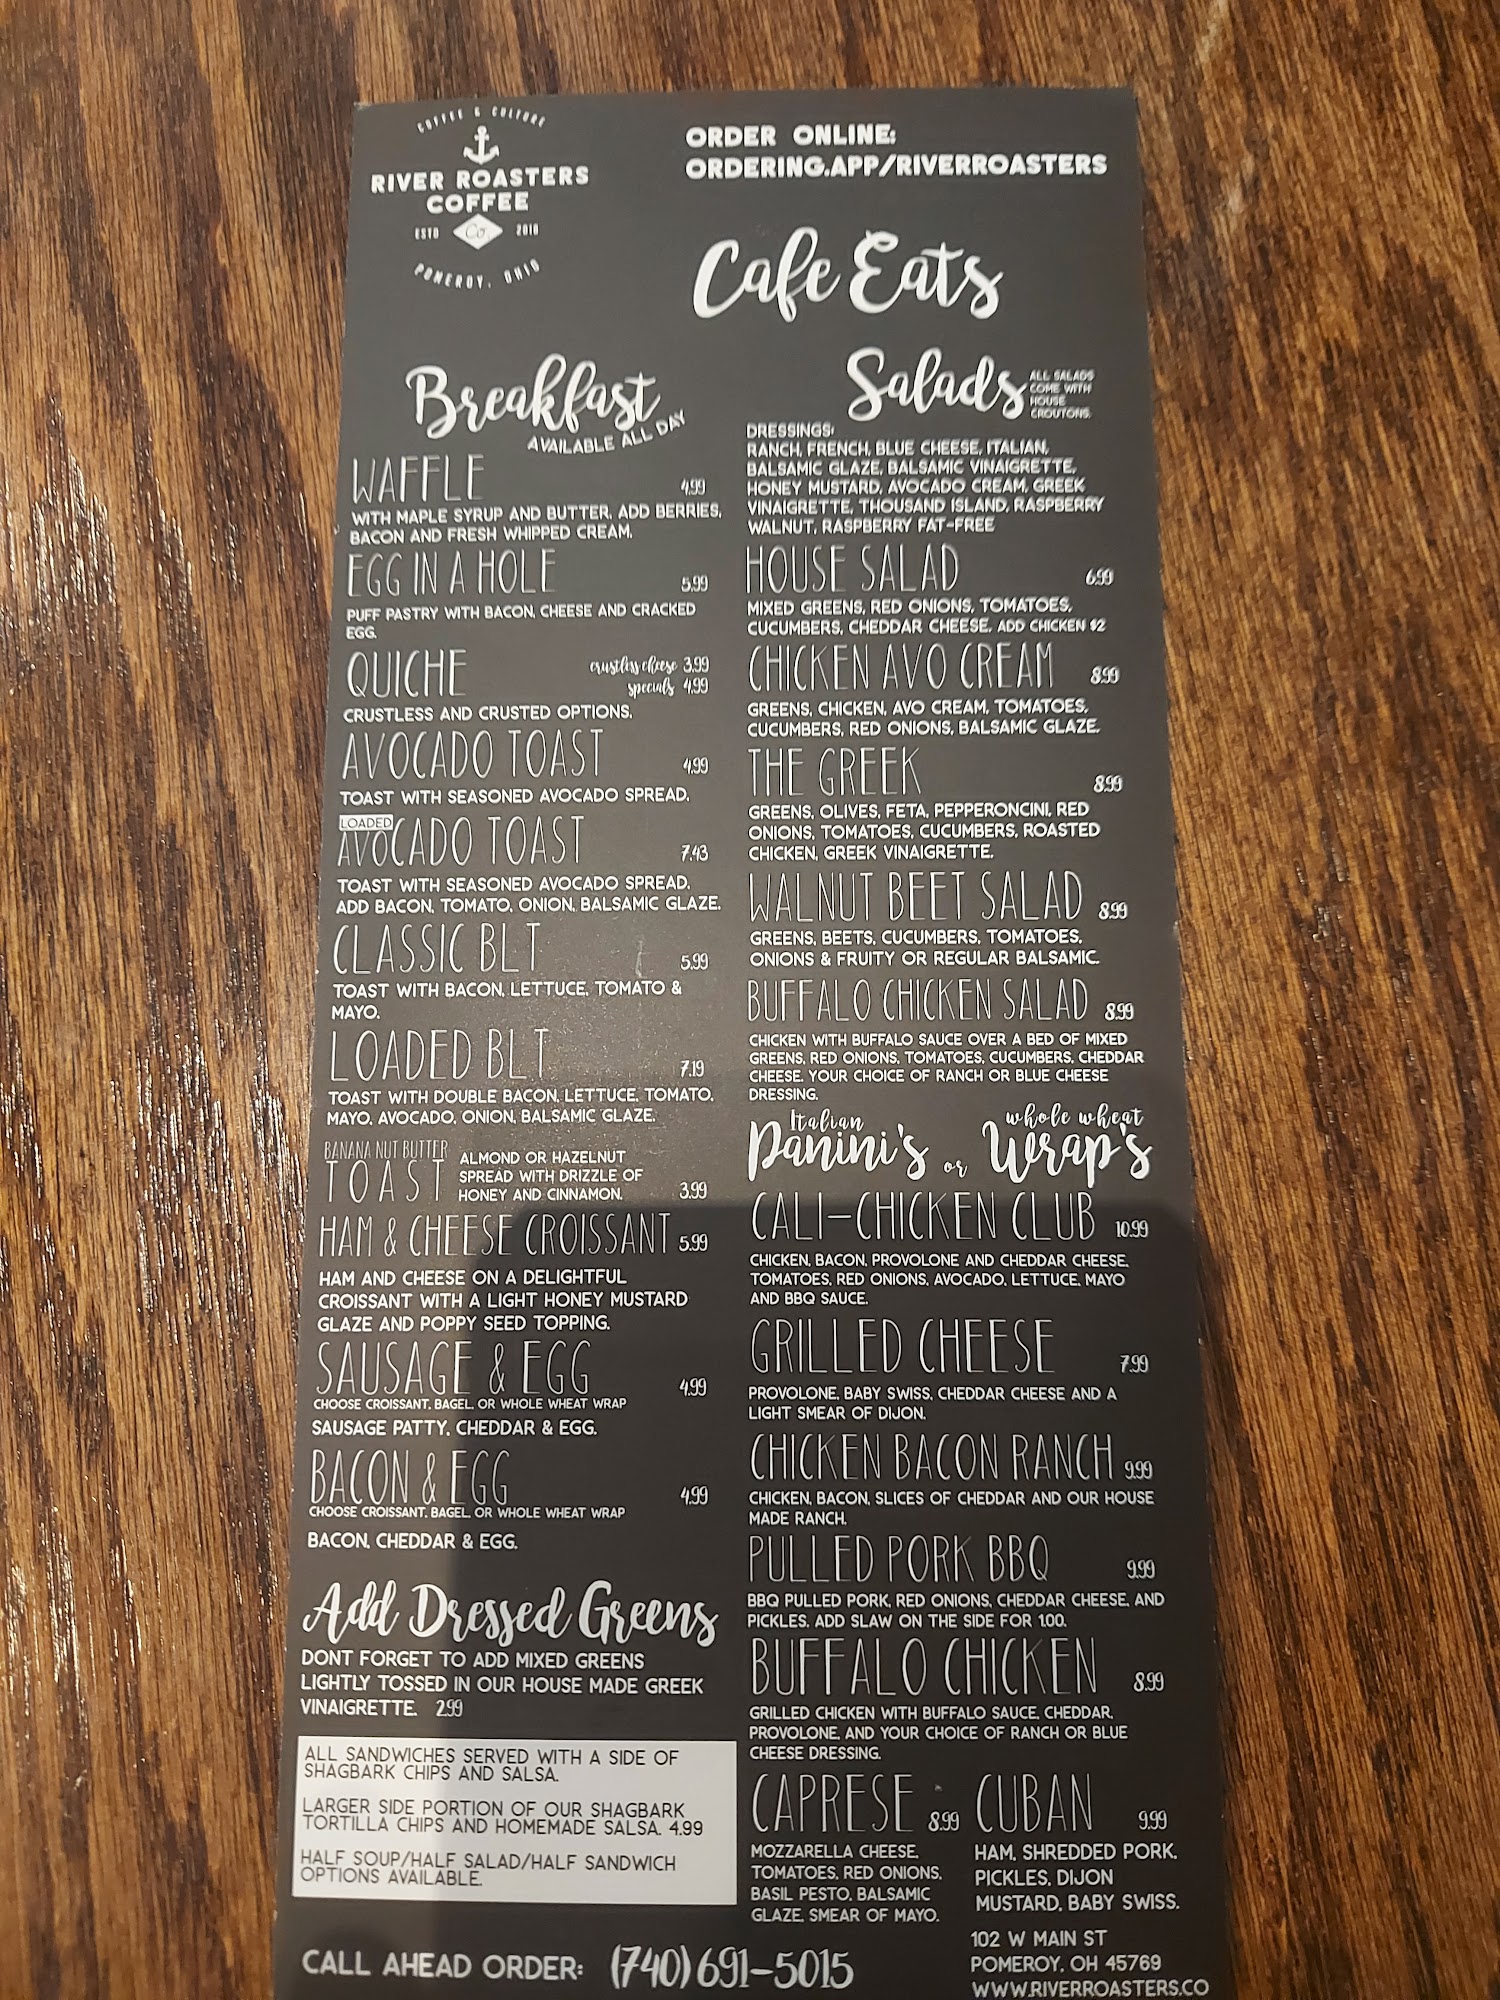 COFFEE & CULTURE
RIVER ROASTERS
COFFEE
ESTD Co. 2016
POMEROY, OHIO
ORDER ONLINE:
ORDERING.APP/RIVERROASTERS
Cafe Eats
Breakfast
AVAILABLE ALL DAY
WAFFLE 4.99
WITH MAPLE SYRUP AND BUTTER, ADD BERRIES,
BACON AND FRESH WHIPPED CREAM.
EGG IN A HOLE 5.99
PUFF PASTRY WITH BACON, CHEESE AND CRACKED
EGG.
QUICHE crustless cheese 3.99
specials 4.99
CRUSTLESS AND CRUSTED OPTIONS.
AVOCADO TOAST 4.99
TOAST WITH SEASONED AVOCADO SPREAD.
LOADED
AVOCADO TOAST 7.43
TOAST WITH SEASONED AVOCADO SPREAD.
ADD BACON, TOMATO, ONION, BALSAMIC GLAZE.
CLASSIC BLT 5.99
TOAST WITH BACON, LETTUCE, TOMATO &
MAYO.
LOADED BLT 7.19
TOAST WITH DOUBLE BACON, LETTUCE, TOMATO,
MAYO, AVOCADO, ONION, BALSAMIC GLAZE.
BANANA NUT BUTTER
TOAST 3.99
ALMOND OR HAZELNUT
SPREAD WITH DRIZZLE OF
HONEY AND CINNAMON.
HAM & CHEESE CROISSANT 5.99
HAM AND CHEESE ON A DELIGHTFUL
CROISSANT WITH A LIGHT HONEY MUSTARD
GLAZE AND POPPY SEED TOPPING.
SAUSAGE & EGG 4.99
CHOOSE CROISSANT, BAGEL, OR WHOLE WHEAT WRAP
SAUSAGE PATTY, CHEDDAR & EGG.
BACON & EGG 4.99
CHOOSE CROISSANT, BAGEL, OR WHOLE WHEAT WRAP
BACON, CHEDDAR & EGG.
Add Dressed Greens
DONT FORGET TO ADD MIXED GREENS
LIGHTLY TOSSED IN OUR HOUSE MADE GREEK
VINAIGRETTE. 2.99
ALL SANDWICHES SERVED WITH A SIDE OF
SHAGBARK CHIPS AND SALSA.
LARGER SIDE PORTION OF OUR SHAGBARK
TORTILLA CHIPS AND HOMEMADE SALSA. 4.99
HALF SOUP/HALF SALAD/HALF SANDWICH
OPTIONS AVAILABLE.
Salads
ALL SALADS
COME WITH
HOUSE
CROUTONS.
DRESSINGS:
RANCH, FRENCH, BLUE CHEESE, ITALIAN,
BALSAMIC GLAZE, BALSAMIC VINAIGRETTE,
HONEY MUSTARD, AVOCADO CREAM, GREEK
VINAIGRETTE, THOUSAND ISLAND, RASPBERRY
WALNUT, RASPBERRY FAT-FREE
HOUSE SALAD 6.99
MIXED GREENS, RED ONIONS, TOMATOES,
CUCUMBERS, CHEDDAR CHEESE. ADD CHICKEN $2
CHICKEN AVO CREAM 8.99
GREENS, CHICKEN, AVO CREAM, TOMATOES,
CUCUMBERS, RED ONIONS, BALSAMIC GLAZE.
THE GREEK 8.99
GREENS, OLIVES, FETA, PEPPERONCINI, RED
ONIONS, TOMATOES, CUCUMBERS, ROASTED
CHICKEN, GREEK VINAIGRETTE.
WALNUT BEET SALAD 8.99
GREENS, BEETS, CUCUMBERS, TOMATOES,
ONIONS & FRUITY OR REGULAR BALSAMIC.
BUFFALO CHICKEN SALAD 8.99
CHICKEN WITH BUFFALO SAUCE OVER A BED OF MIXED
GREENS, RED ONIONS, TOMATOES, CUCUMBERS, CHEDDAR
CHEESE. YOUR CHOICE OF RANCH OR BLUE CHEESE
DRESSING.
Italian Panini's or whole wheat Wrap's
CALI-CHICKEN CLUB 10.99
CHICKEN, BACON, PROVOLONE AND CHEDDAR CHEESE,
TOMATOES, RED ONIONS, AVOCADO, LETTUCE, MAYO
AND BBQ SAUCE.
GRILLED CHEESE 7.99
PROVOLONE, BABY SWISS, CHEDDAR CHEESE AND A
LIGHT SMEAR OF DIJON.
CHICKEN BACON RANCH 9.99
CHICKEN, BACON, SLICES OF CHEDDAR AND OUR HOUSE
MADE RANCH.
PULLED PORK BBQ 9.99
BBQ PULLED PORK, RED ONIONS, CHEDDAR CHEESE, AND
PICKLES. ADD SLAW ON THE SIDE FOR 1.00.
BUFFALO CHICKEN 8.99
GRILLED CHICKEN WITH BUFFALO SAUCE, CHEDDAR,
PROVOLONE, AND YOUR CHOICE OF RANCH OR BLUE
CHEESE DRESSING.
CAPRESE 8.99
MOZZARELLA CHEESE,
TOMATOES, RED ONIONS,
BASIL PESTO, BALSAMIC
GLAZE, SMEAR OF MAYO.
CUBAN 9.99
HAM, SHREDDED PORK,
PICKLES, DIJON
MUSTARD, BABY SWISS.
CALL AHEAD ORDER: (740)691-5015
102 W MAIN ST
POMEROY, OH 45769
WWW.RIVERROASTERS.CO